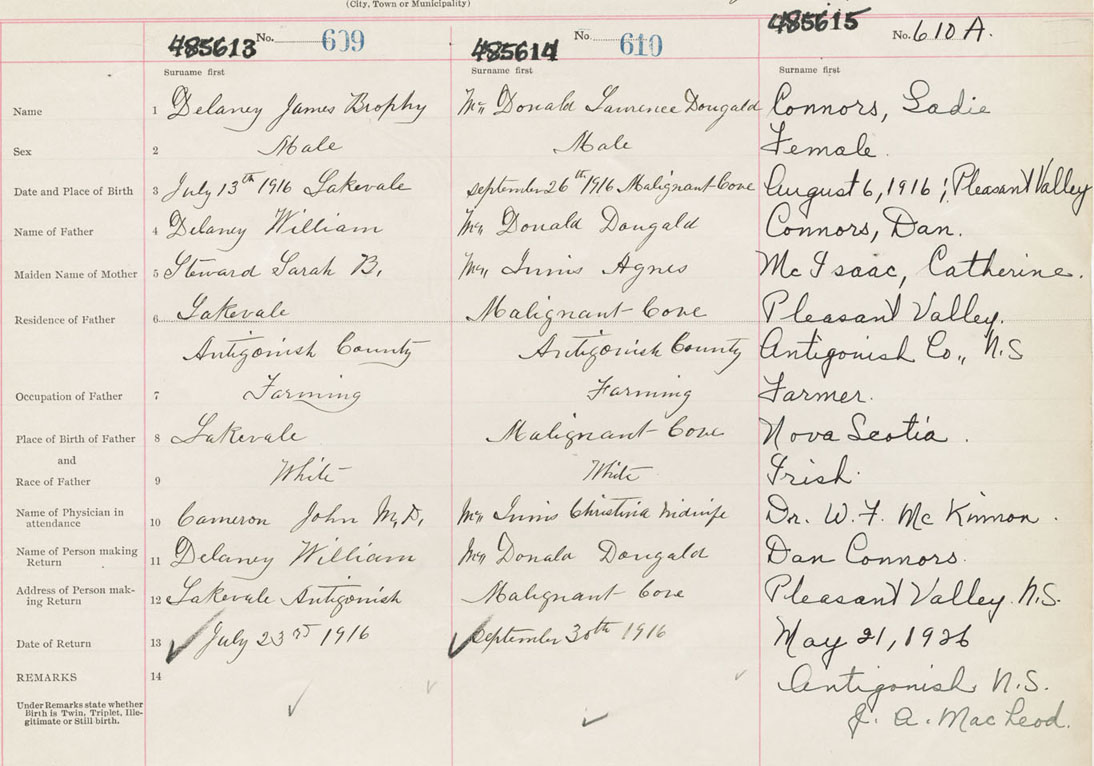 (City, Town or Municipality)
485613 No. 609 485614 No. 610 485615 No. 610 A.
Surname first Surname first Surname first
Name 1 Delaney James Brophy Mc Donald Laurence Dougald Connors, Sadie
Sex 2 Male Male Female.
Date and Place of Birth 3 July 13th 1916 Lakevale September 26th 1916 Malignant Cove August 6, 1916; Pleasant Valley
Name of Father 4 Delaney William Mc Donald Dougald Connors, Dan.
Maiden Name of Mother 5 Steward Sarah B. Mc Innis Agnes Mc Isaac, Catherine.
Residence of Father 6 Lakevale Malignant Cove Pleasant Valley.
Antigonish County Antigonish County Antigonish Co., N.S
Occupation of Father 7 Farming Farming Farmer.
Place of Birth of Father 8 Lakevale Malignant Cove Nova Scotia.
and
Race of Father 9 White White Irish.
Name of Physician in
attendance 10 Cameron John M.D. Mc Innis Christina Midwife Dr. W. F. Mc Kinnon.
Name of Person making
Return 11 Delaney William Mc Donald Dougald Dan Connors.
Address of Person mak-
ing Return 12 Lakevale Antigonish Malignant Cove Pleasant Valley. N.S.
Date of Return 13 July 23rd 1916 September 30th 1916 May 21, 1926
REMARKS 14 Antigonish N.S.
Under Remarks state whether
Birth is Twin, Triplet, Ille-
gitimate or Still birth. J. A. MacLeod.